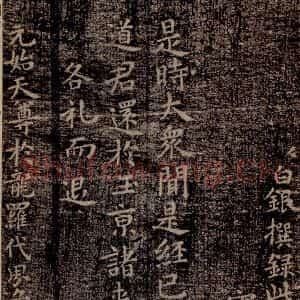 白銀撰録此
是時太衆聞是經已
道君還於玉京諸
各礼而退
元始天尊於龍羅代